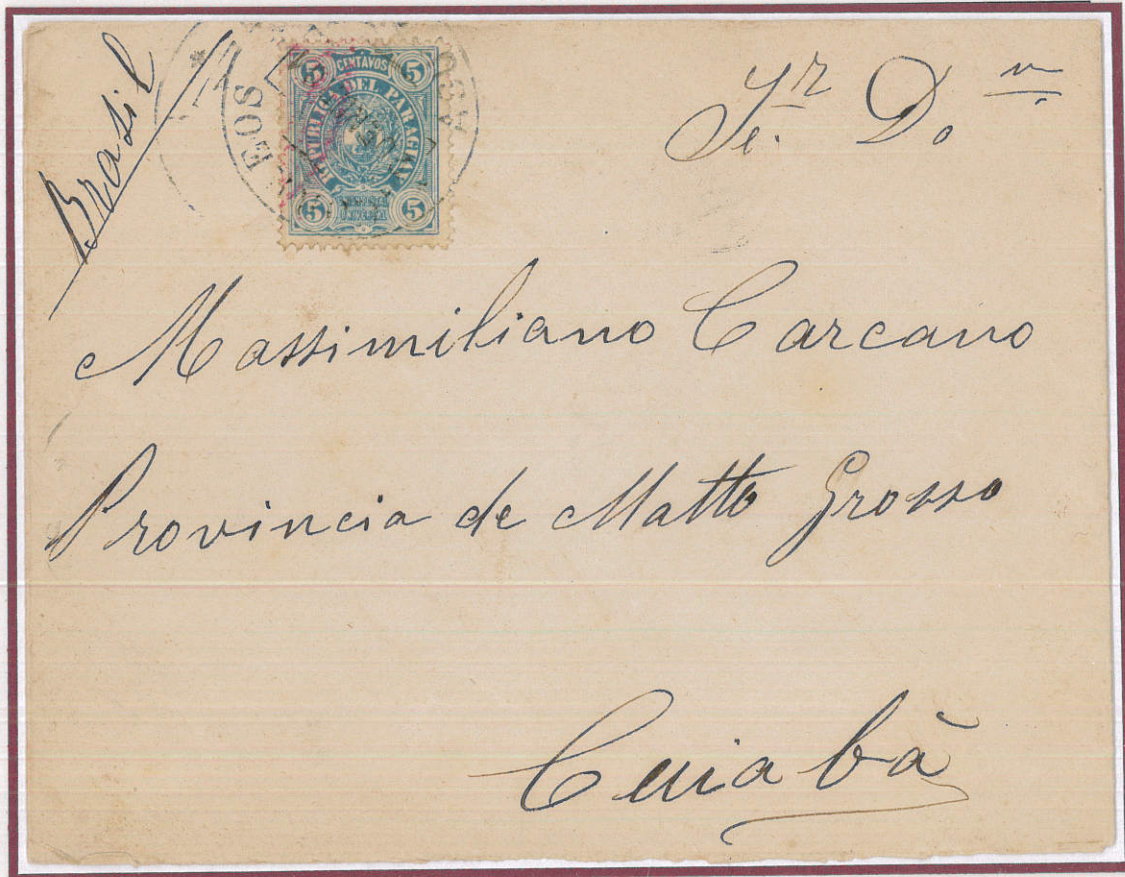 Brasil
EOS
5 CENTAVOS 5
REPUBLICA DEL PARAGUAY
5 5
Sr. Dn
Massimiliano Carcano
Provincia de Matto Grosso
Cuiabà